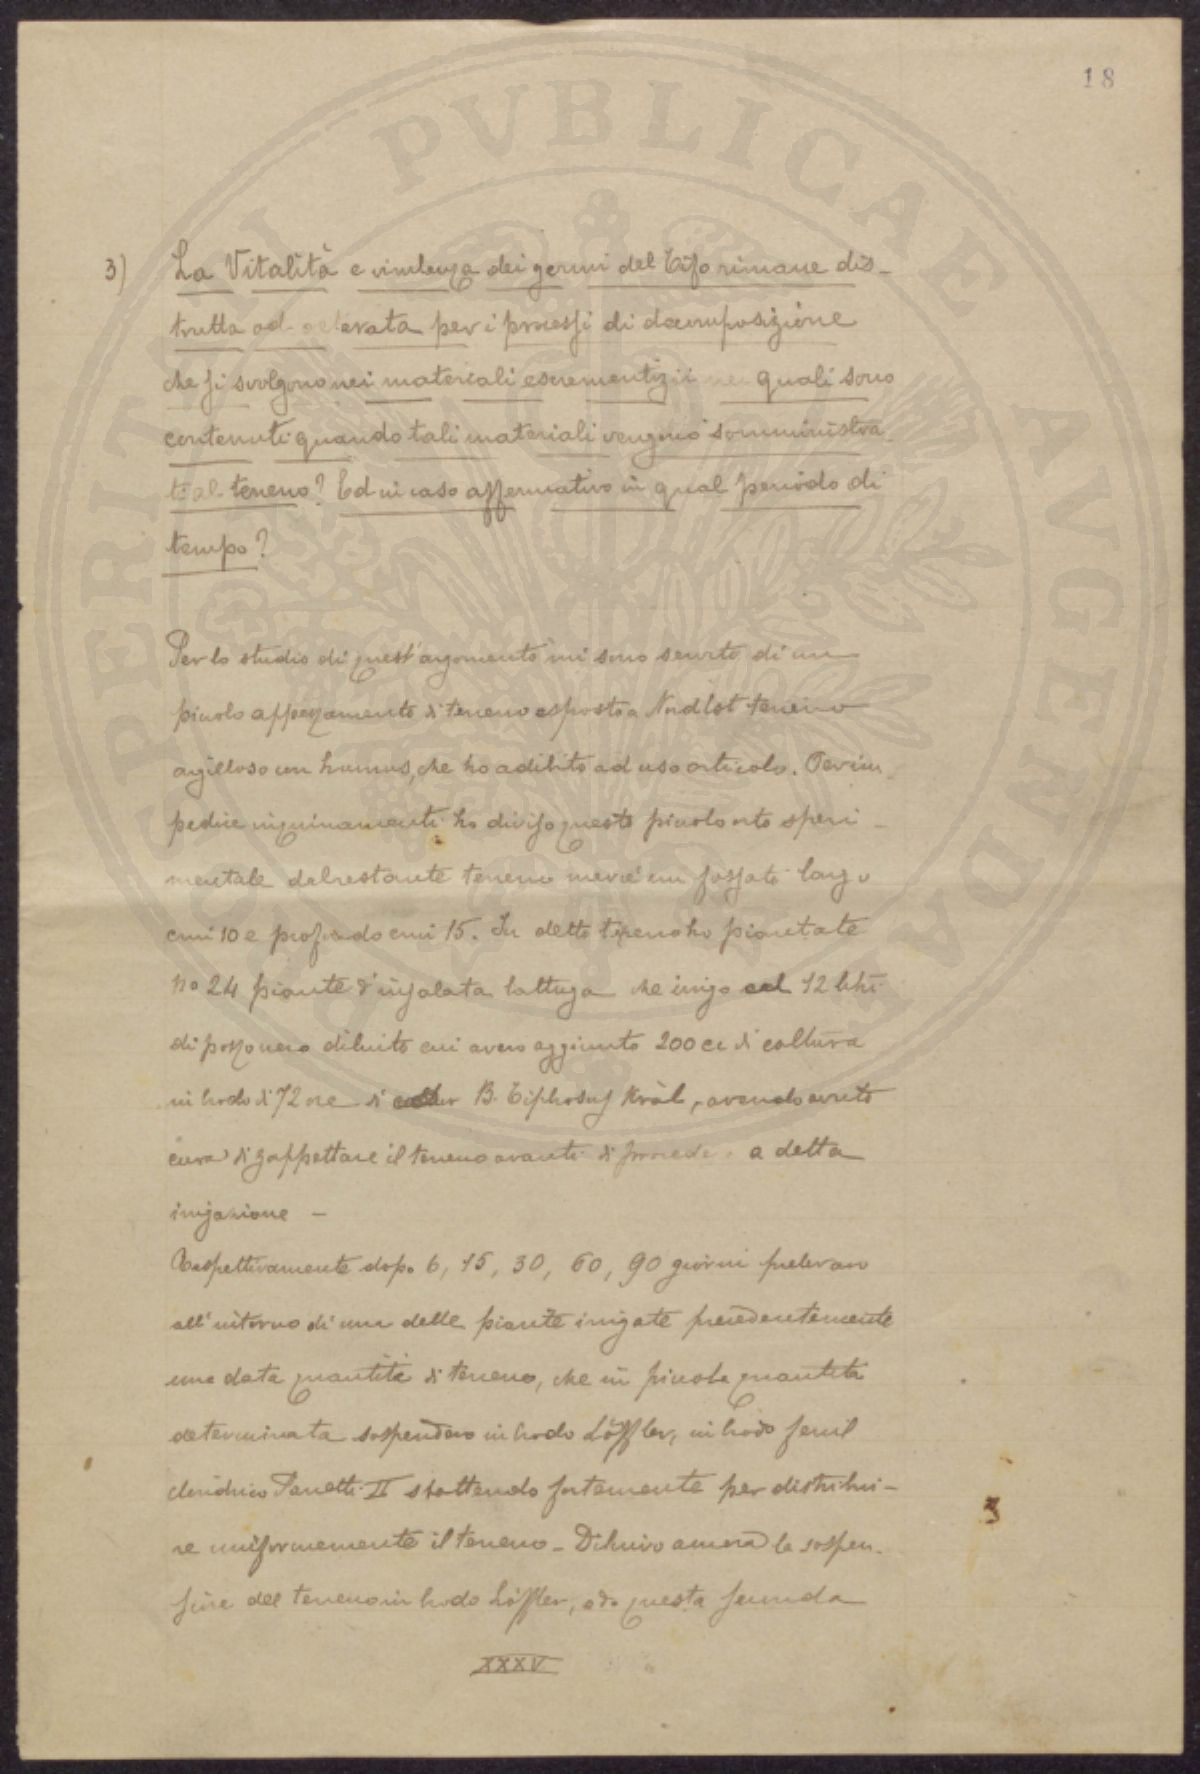 18
3) La Vitalità e virulenza dei germi del tifo rimane dis-
trutta od alterata per i processi di decomposizione
che si svolgono nei materiali escrementizii nei quali sono
contenuti quando tali materiali vengono somministra
ti al terreno? Ed in caso affermativo in qual periodo di
tempo?
Per lo studio di quest'argomento mi sono servito di un
piccolo appezzamento di terreno esposto a Nord Est terreno
argilloso con humus, che ho adibito ad uso orticolo. Per im
pedire inquinamenti ho diviso questo piccolo orto speri-
mentale dal restante terreno mercé un fossato largo
cmi 10 e profondo cmi 15. In detto terreno ho piantate
no 24 piante d'insalata lattuga che irrigo col 12 litri
di pozzo nero diluito cui avevo aggiunto 200 cc di coltura
in brodo di 72 ore di B. Tiphosus Kràl, avendo avuto
cura di zappettare il terreno avanti di procedere a detta
irrigazione -
Rispettivamente dopo 6, 15, 30, 60, 90 giorni prelevavo
all'intorno di una delle piante irrigate precedentemente
una data quantità di terreno, che in piccola quantità
determinata sospendevo in brodo Löffler, in brodo fenil
cloridrico Parietti II sbattendo fortemente per distribui-
re uniformemente il terreno - Diluivo ancora la sospen-
sione del terreno in brodo Löffler, e da questa seconda
3
XXXV
PROSPERITATI PVBLICAE AVGENDAE